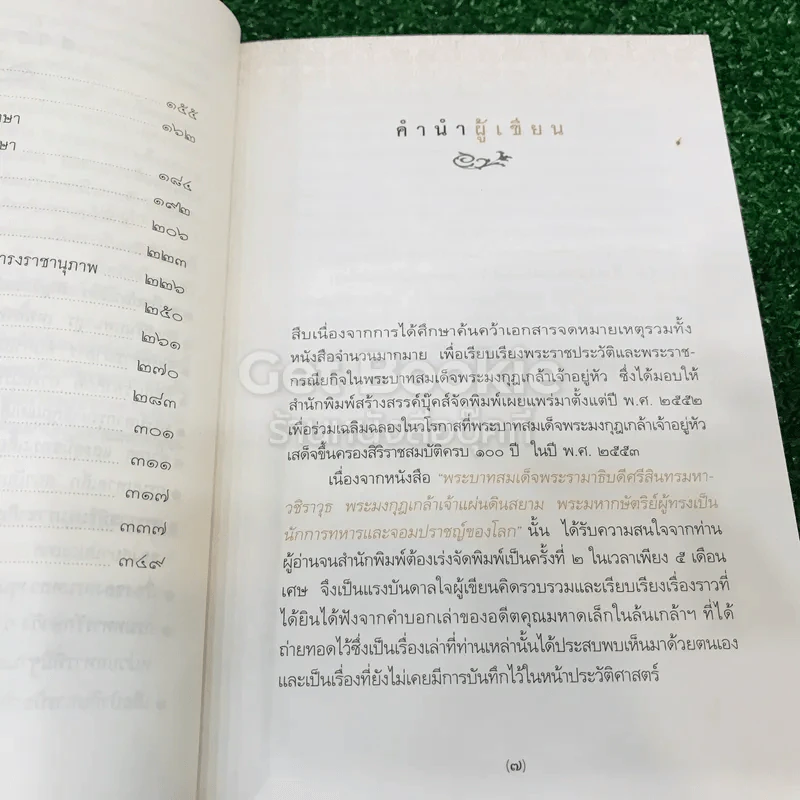 ๑๕๕
๑๖๒
๑๘๔
๑๙๒
๒๐๖
๒๒๓
ารงราชานุภาพ ๒๒๖
๒๕๐
๒๖๑
๒๗๐
๒๘๓
๓๐๑
๓๑๑
๓๑๗
๓๓๗
๓๔๙
คำนำผู้เขียน
สืบเนื่องจากการได้ศึกษาค้นคว้าเอกสารจดหมายเหตุรวมทั้ง
หนังสือจำนวนมากมาย เพื่อเรียบเรียงพระราชประวัติและพระราช-
กรณียกิจในพระบาทสมเด็จพระมงกุฎเกล้าเจ้าอยู่หัว ซึ่งได้มอบให้
สำนักพิมพ์สร้างสรรค์บุ๊คส์จัดพิมพ์เผยแพร่มาตั้งแต่ปี พ.ศ. ๒๕๕๒
เพื่อร่วมเฉลิมฉลองในวโรกาสที่พระบาทสมเด็จพระมงกุฎเกล้าเจ้าอยู่หัว
เสด็จขึ้นครองสิริราชสมบัติครบ ๑๐๐ ปี ในปี พ.ศ. ๒๕๕๓
เนื่องจากหนังสือ "พระบาทสมเด็จพระรามาธิบดีศรีสินทรมหา-
วชิราวุธ พระมงกุฎเกล้าเจ้าแผ่นดินสยาม พระมหากษัตริย์ผู้ทรงเป็น
นักการทหารและจอมปราชญ์ของโลก" นั้น ได้รับความสนใจจากท่าน
ผู้อ่านจนสำนักพิมพ์ต้องเร่งจัดพิมพ์เป็นครั้งที่ ๒ ในเวลาเพียง ๕ เดือน
เศษ จึงเป็นแรงบันดาลใจผู้เขียนคิดรวบรวมและเรียบเรียงเรื่องราวที่
ได้ยินได้ฟังจากคำบอกเล่าของอดีตคุณมหาดเล็กในล้นเกล้าฯ ที่ได้
ถ่ายทอดไว้ซึ่งเป็นเรื่องเล่าที่ท่านเหล่านั้นได้ประสบพบเห็นมาด้วยตนเอง
และเป็นเรื่องที่ยังไม่เคยมีการบันทึกไว้ในหน้าประวัติศาสตร์
(๗)
GenBookie
ร้านหนังสือบุ๊คกี้